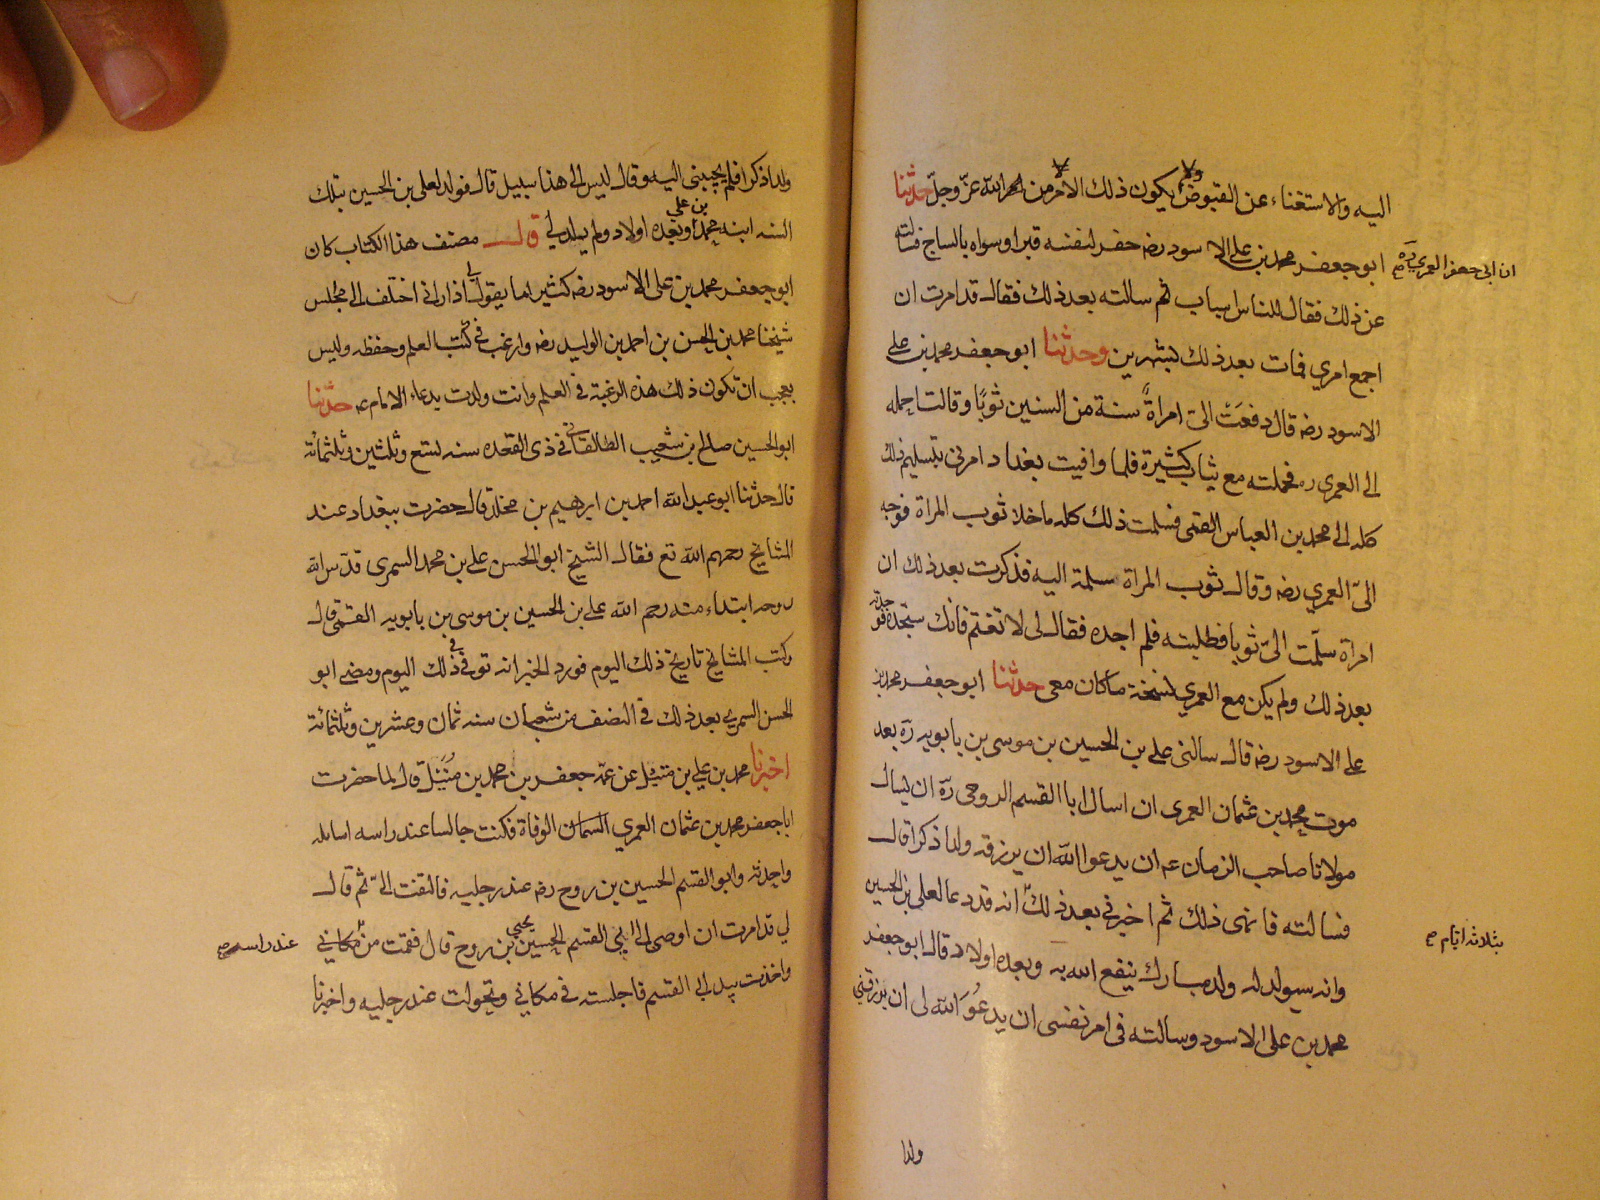 اليه والاستغناء عن القبوض ولا يكون ذلك الا من امر الله عز وجل حدثنا
ابو جعفر محمد بن على الاسود رضه حفر لنفسه قبرا وسواه بالساج فسالته
ان ابى جعفر العمري ره صح
عن ذلك فقال للناس اسباب ثم سالته بعد ذلك فقال قد امرت ان
اجمع امري فمات بعد ذلك بشهرين وحدثنا ابو جعفر محمد بن على
الاسود رضه قال دفعت الىّ امراةٌ سنة من السنين ثوبًا وقالت احمله
الى العمري ره فحملته مع ثياب كثيرة فلما وافيت بغداد امرنى بتسليم ذلك
كله الى محمد بن العباس القمى فسلمت ذلك كله ما خلا ثوب المراة فوجه
الىّ العمري رضه وقال ثوب المراة سلمه اليه فذكرت بعد ذلك ان
امراة سلّمت الىّ ثوبا فطلبته فلم اجده فقال لى لا تغتم فانك ستجده فوجدته
بعد ذلك ولم يكن مع العمري نسخة ما كان معى حدثنا ابو جعفر محمد بن
على الاسود رضه قال سالنى على بن الحسين بن موسى بن بابويه ره بعد
موت محمد بن عثمان العمرى ان اسال ابا القسم الروحى ره ان يسال
مولانا صاحب الزمان عه ان يدعوا الله ان يرزقه ولدا ذكرا قال
فسالته فانهى ذلك ثم اخبرنى بعد ذلك انه قد دعا لعلى بن الحسين
بثلاثة ايام صح
وانه سيولد له ولد مبارك ينفع الله به وبعده اولاد قال ابو جعفر
محمد بن على الاسود وسالته فى امر نفسى ان يدعُوَ الله لى ان يرزقنى
ولدا
ولدا ذكرا فلم يجبنى اليه وقال ليس الى هذا سبيل قال فولد لعلى بن الحسين بتلك
السنه ابنه محمد بن على وبعده اولاد ولم يولد لي قال مصنف هذا الكتاب كان
ابو جعفر محمد بن على الاسود رضه كثيرا ما يقول لى اذا رانى اختلف الى مجلس
شيخنا محمد بن الحسن بن احمد بن الوليد رضه وارغب فى كتب العلم وحفظه وليس
بعجب ان تكون ذلك هذه الرغبة فى العلم وانت ولدت بدعاء الامام عه حدثنا
ابو الحسين صالح بن شعيب الطالقانى فى ذى القعده سنه تسع وثلثين وثلثمائة
قال حدثنا ابو عبد الله احمد بن ابرهيم بن مخلد قال حضرت ببغداد عند
المشايخ رحمهم الله تع فقال الشيخ ابو الحسن على بن محمد السمرى قدس الله
روحه ابتداء منه رحم الله على بن الحسين بن موسى بن بابويه القمى قال
وكتب المشايخ تاريخ ذلك اليوم فورد الخبر انه توفى فى ذلك اليوم ومضى ابو
الحسن السمري بعد ذلك فى النصف من شعبان سنه ثمان وعشرين وثلثمائة
اخبرنا محمد بن على بن متيل عن عمه جعفر بن محمد بن متيل قال لما حضرت
ابا جعفر محمد بن عثمان العمري السمان الوفاة فكنت جالسا عند راسه اسايله
واحدثه وابو القسم الحسين بن روح رضه عند رجليه فالتفت الىّ ثم قال
لي قد امرت ان اوصى الى ابي القسم الحسين بن روح قال فقمت من مكاني
عند راسه صح
واخذت بيد ابى القسم فاجلسته فى مكانى وتحولت عند رجليه واخبرنا